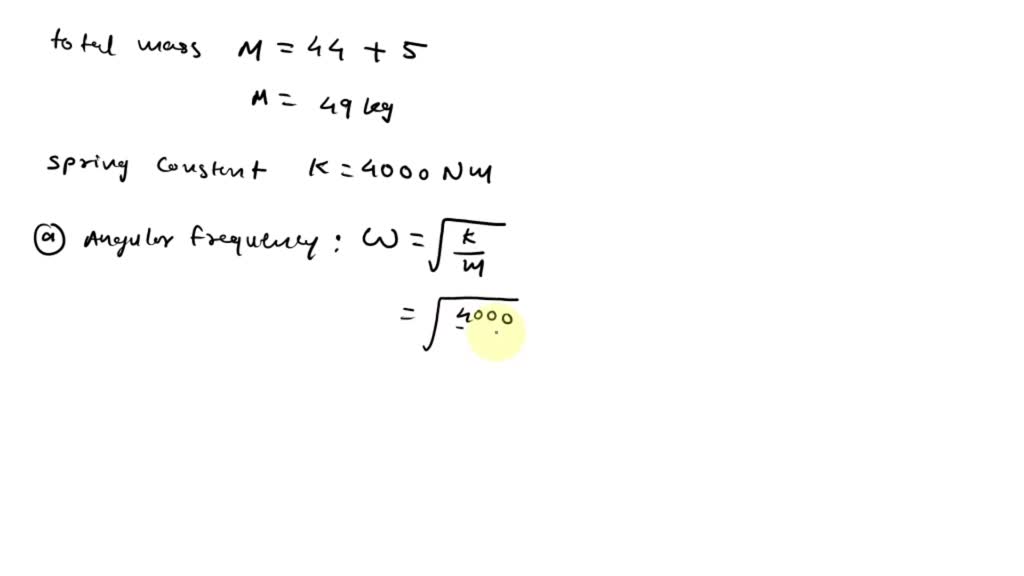 total mass M = 44 + 5
M = 49 kg
spring constant K = 4000 N m
(a) Angular frequency : ω = √(K/m)
= √4000